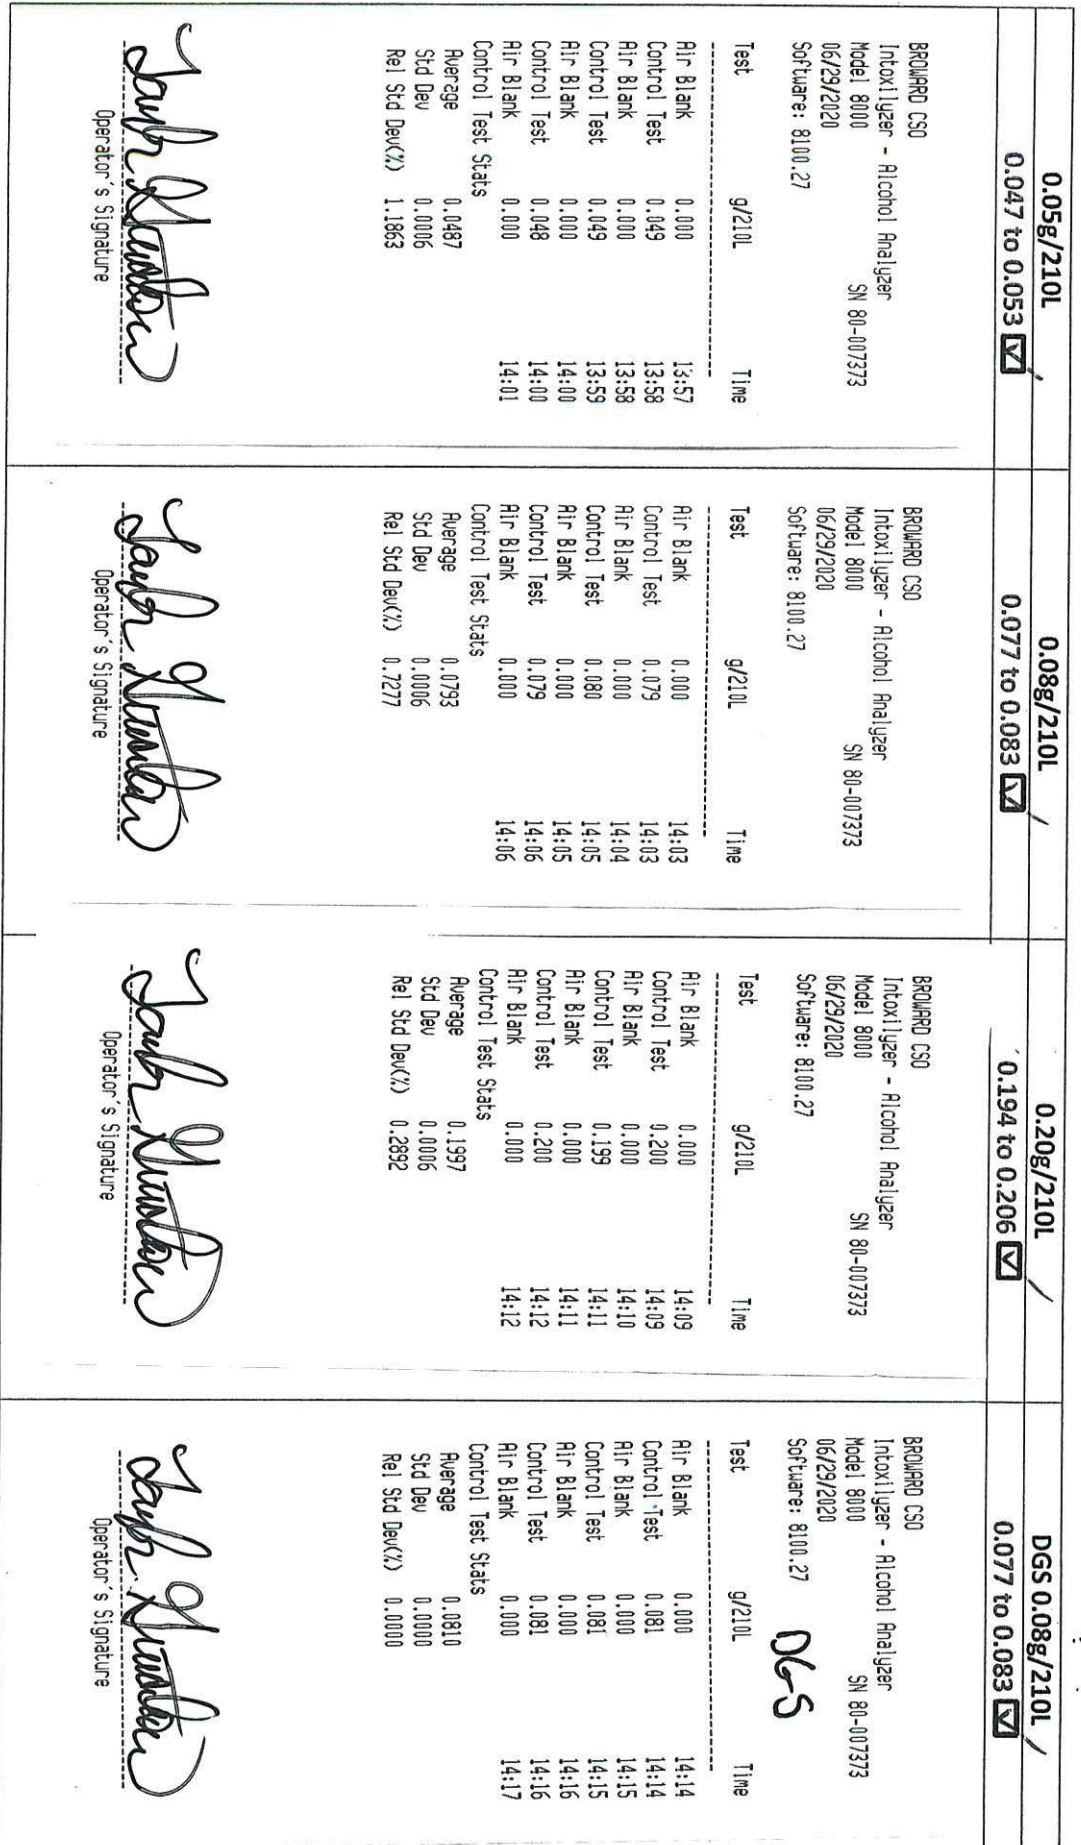 0.05g/210L
0.047 to 0.053 ☑
BROWARD CSO
Intoxilyzer - Alcohol Analyzer
Model 8000 SN 80-007373
06/29/2020
Software: 8100.27
Test g/210L Time
Air Blank 0.000 13:57
Control Test 0.049 13:58
Air Blank 0.000 13:58
Control Test 0.049 13:59
Air Blank 0.000 14:00
Control Test 0.048 14:00
Air Blank 0.000 14:01
Control Test Stats
Average 0.0487
Std Dev 0.0006
Rel Std Dev(%) 1.1863
Operator's Signature
0.08g/210L
0.077 to 0.083 ☑
BROWARD CSO
Intoxilyzer - Alcohol Analyzer
Model 8000 SN 80-007373
06/29/2020
Software: 8100.27
Test g/210L Time
Air Blank 0.000 14:03
Control Test 0.079 14:03
Air Blank 0.000 14:04
Control Test 0.080 14:05
Air Blank 0.000 14:05
Control Test 0.079 14:06
Air Blank 0.000 14:06
Control Test Stats
Average 0.0793
Std Dev 0.0006
Rel Std Dev(%) 0.7277
Operator's Signature
0.20g/210L
0.194 to 0.206 ☑
BROWARD CSO
Intoxilyzer - Alcohol Analyzer
Model 8000 SN 80-007373
06/29/2020
Software: 8100.27
Test g/210L Time
Air Blank 0.000 14:09
Control Test 0.200 14:09
Air Blank 0.000 14:10
Control Test 0.199 14:11
Air Blank 0.000 14:11
Control Test 0.200 14:12
Air Blank 0.000 14:12
Control Test Stats
Average 0.1997
Std Dev 0.0006
Rel Std Dev(%) 0.2892
Operator's Signature
DGS 0.08g/210L
0.077 to 0.083 ☑
BROWARD CSO
Intoxilyzer - Alcohol Analyzer
Model 8000 SN 80-007373
06/29/2020
Software: 8100.27 DGS
Test g/210L Time
Air Blank 0.000 14:14
Control Test 0.081 14:14
Air Blank 0.000 14:15
Control Test 0.081 14:15
Air Blank 0.000 14:16
Control Test 0.081 14:16
Air Blank 0.000 14:17
Control Test Stats
Average 0.0810
Std Dev 0.0000
Rel Std Dev(%) 0.0000
Operator's Signature